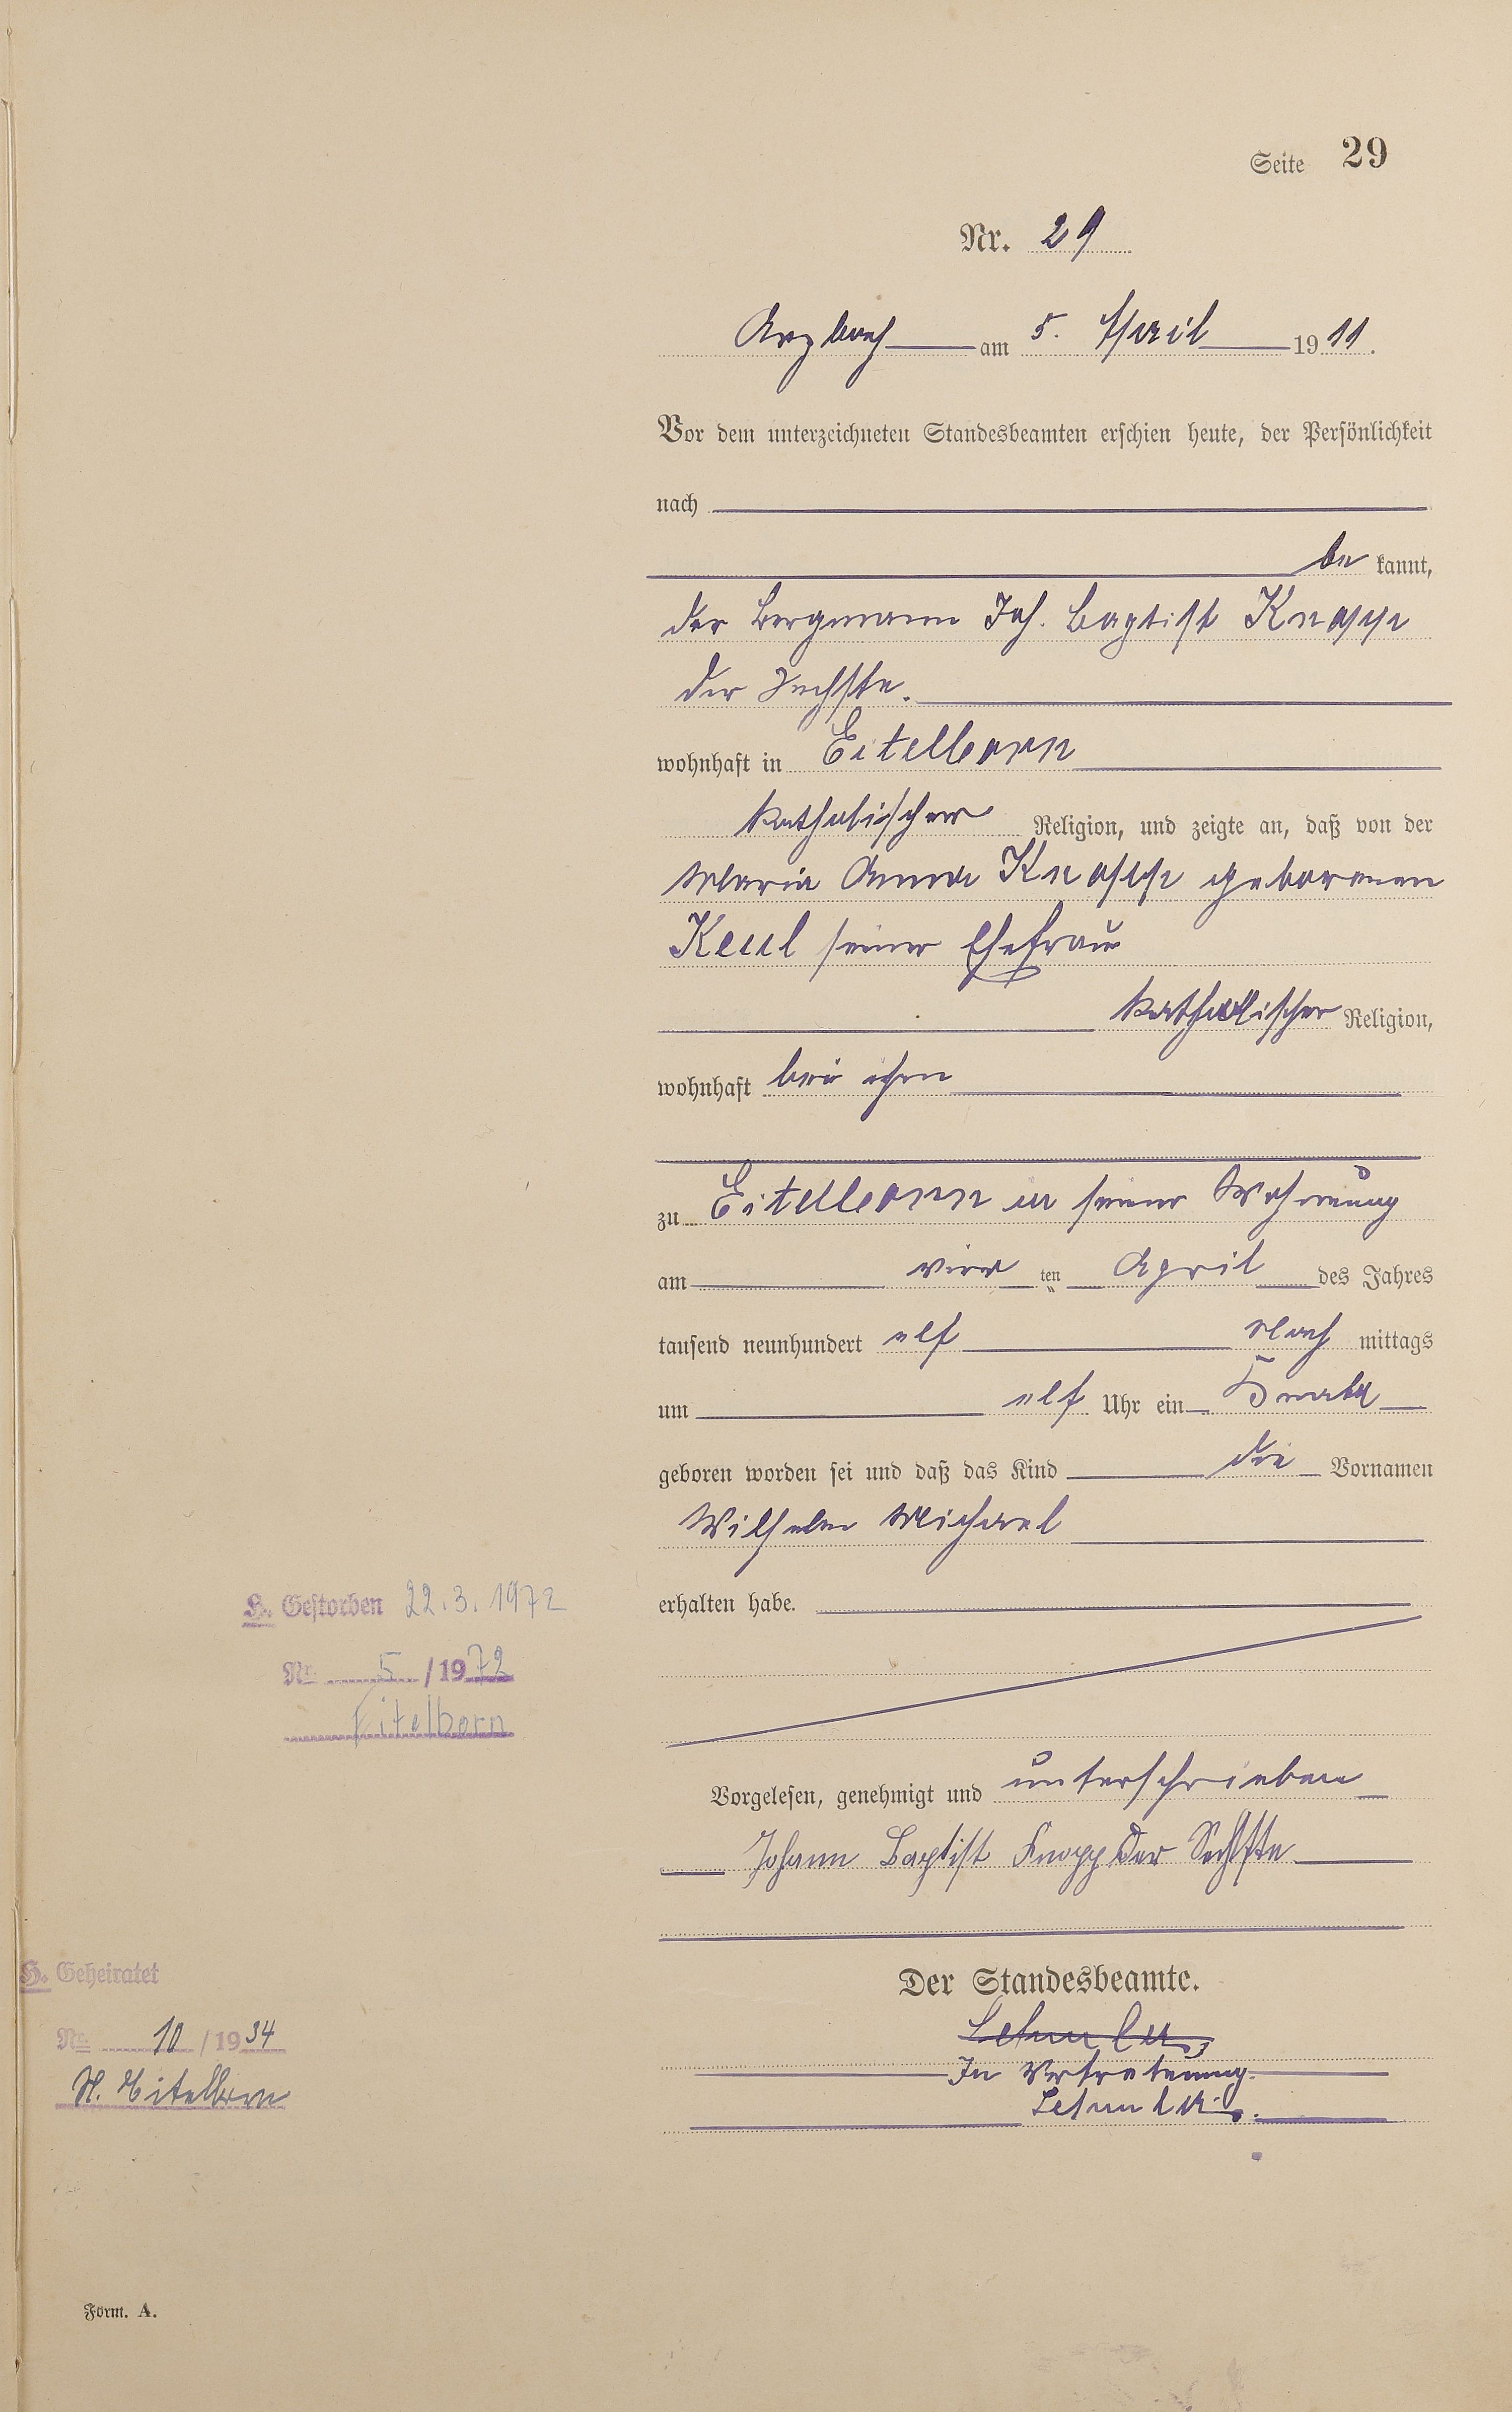 Seite 29
Nr. 29
Arzbach am 5. April 1911.
Vor dem unterzeichneten Standesbeamten erschien heute, der Persönlichkeit
nach
be kannt,
der Bergmann Joh. Baptist Knopp
der Sechste.
wohnhaft in Eitelborn
katholischer Religion, und zeigte an, daß von der
Maria Anna Knopp geborenen
Keul seiner Ehefrau
katholischer Religion,
wohnhaft bei ihm
zu Eitelborn in seiner Wohnung
am vier ten April des Jahres
tausend neunhundert elf Nach mittags
um elf Uhr ein Knabe
geboren worden sei und daß das Kind die Vornamen
Wilhelm Michael
erhalten habe.
H. Gestorben 22.3.1972
Nr. 5 / 1972
Eitelborn
Vorgelesen, genehmigt und unterschrieben
Johann Baptist Knopp der Sechste
H. Geheiratet
Nr. 10 / 1934
St. Eitelborn
Der Standesbeamte.
In Vertretung.
Form. A.